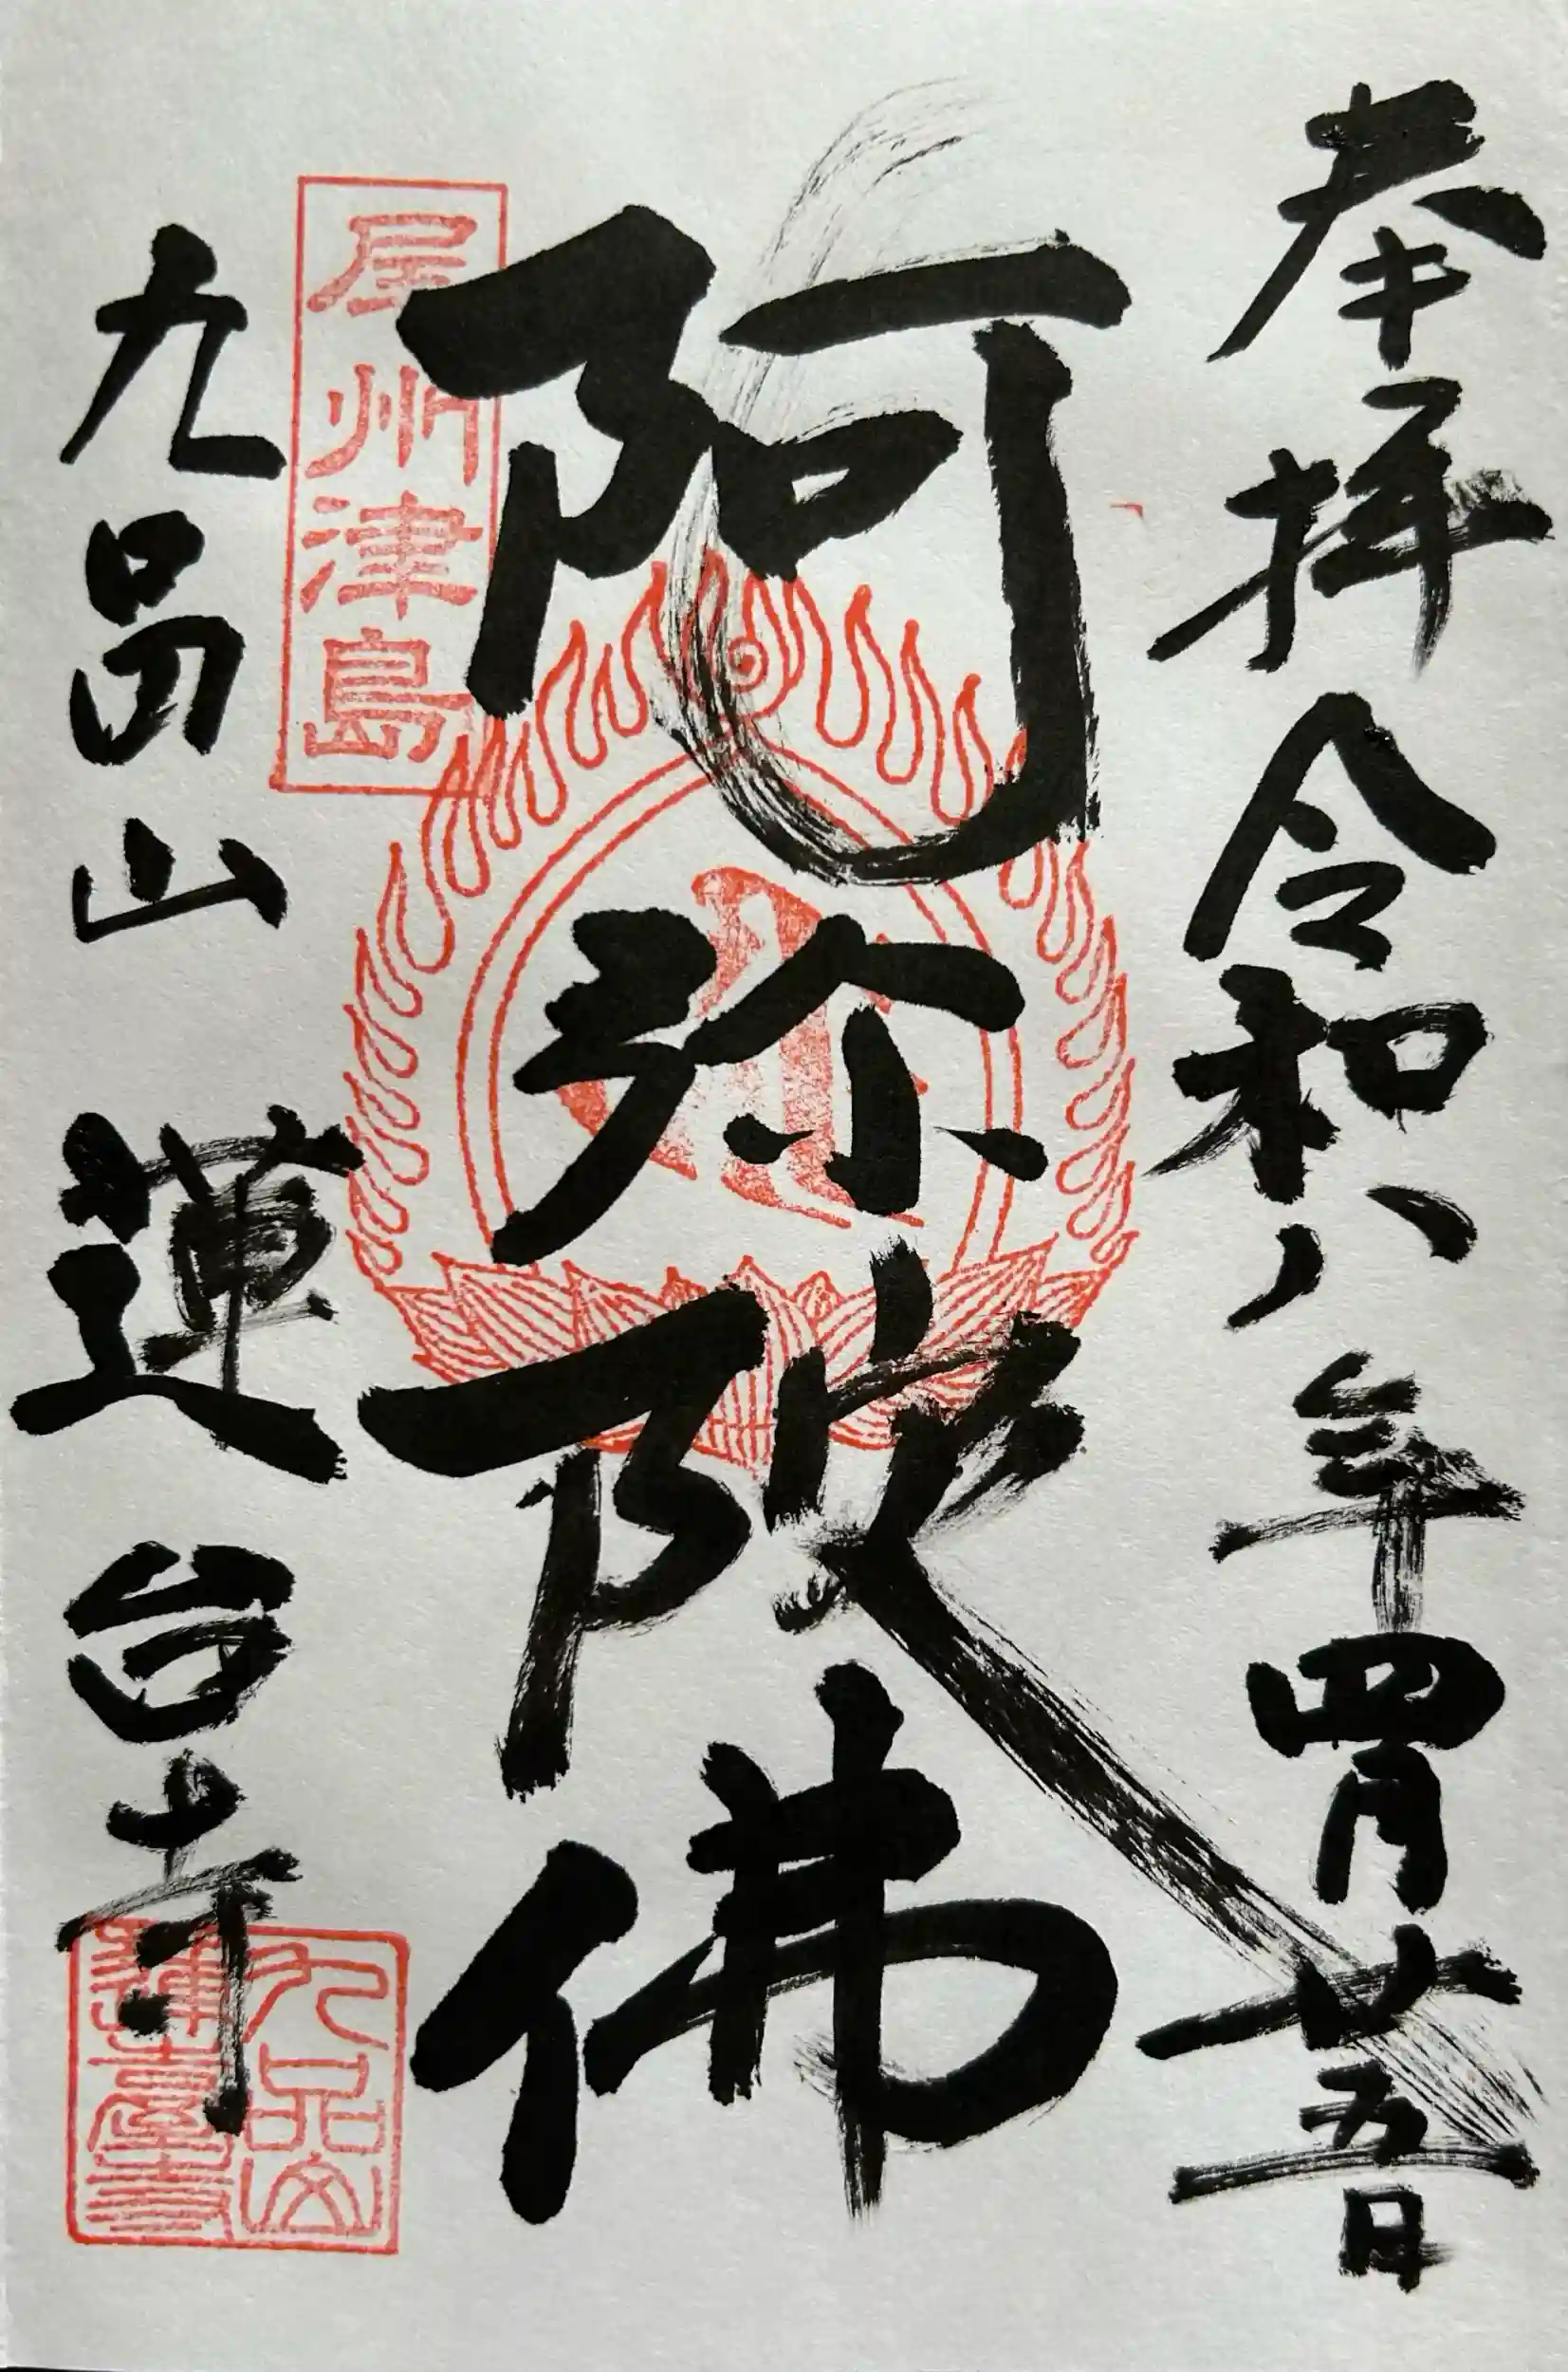 奉拝 令和八年四月廿五日
阿弥陀佛
尾州津島
九品山 蓮台寺
九品山
蓮臺寺